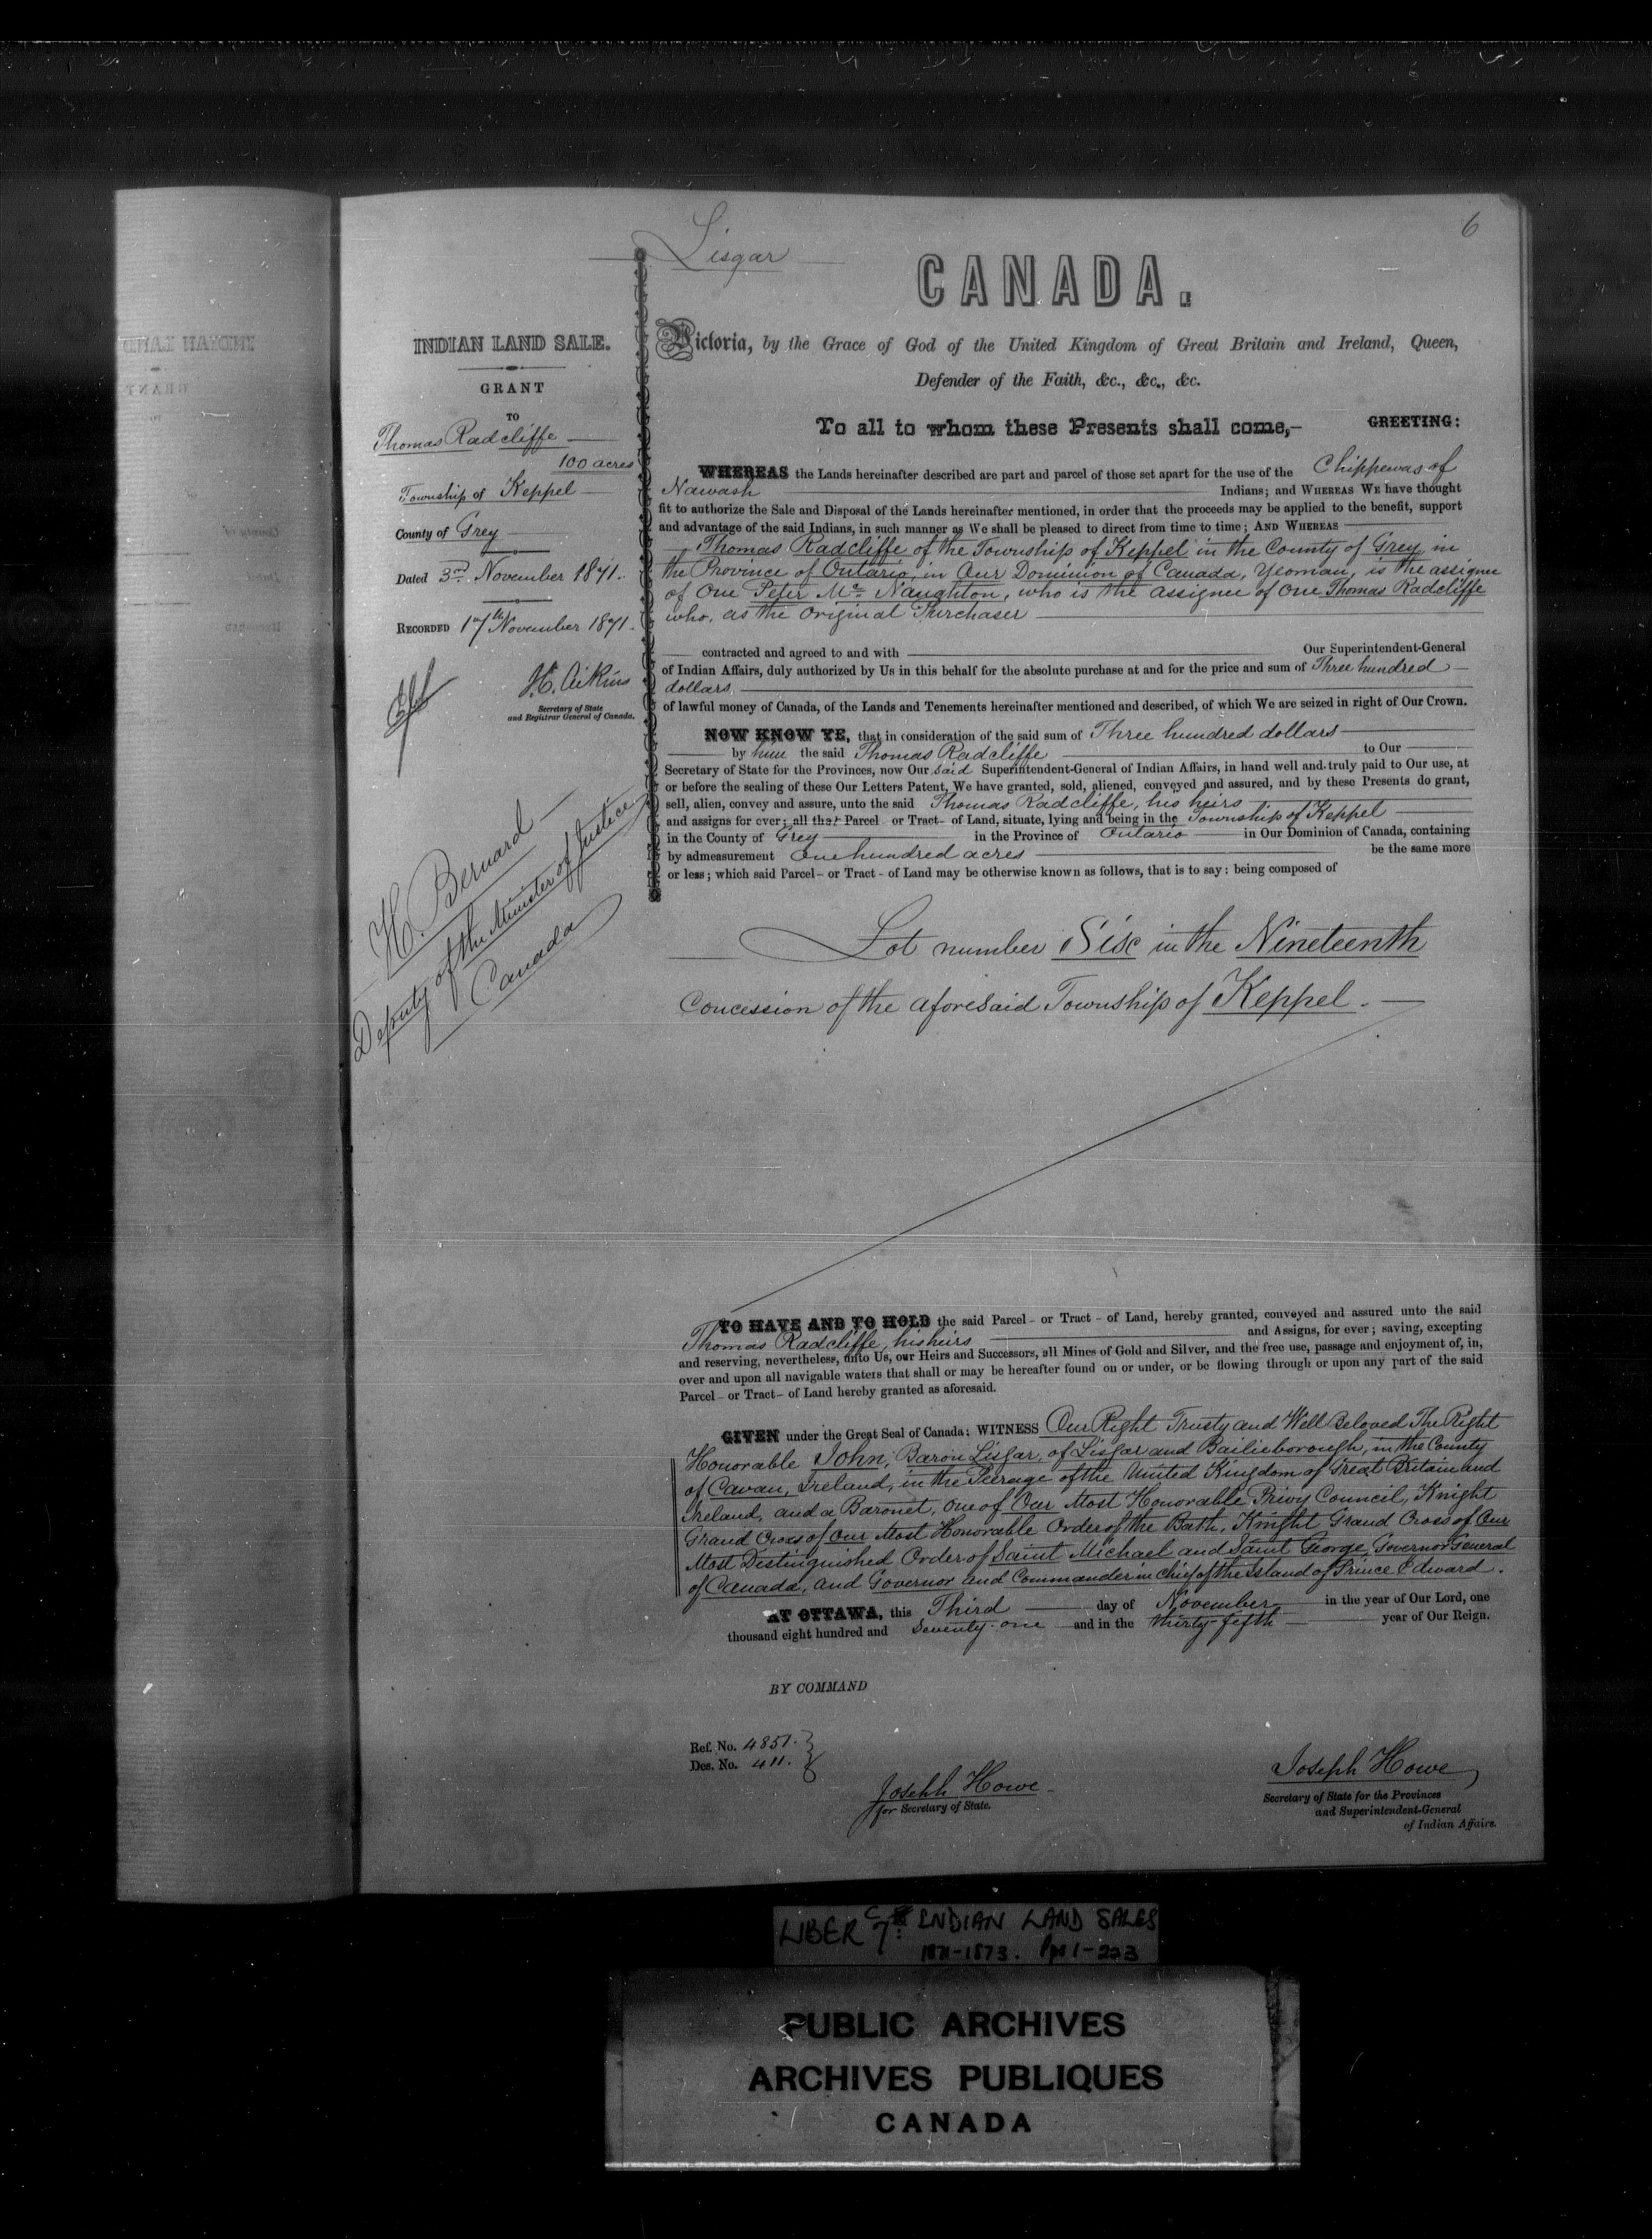 6
Lisgar
CANADA.
Victoria, by the Grace of God of the United Kingdom of Great Britain and Ireland, Queen,
Defender of the Faith, &c., &c., &c.
To all to whom these Presents shall come,— GREETING:
INDIAN LAND SALE.
GRANT
TO
Thomas Radcliffe
100 acres
Township of Keppel
County of Grey
Dated 3rd November 1871.
RECORDED 17th November 1871.
J.C. Aikins
Secretary of State
and Registrar General of Canada.
H. Bernard
Deputy of the Minister of Justice
Canada
WHEREAS the Lands hereinafter described are part and parcel of those set apart for the use of the Chippewas of
Nawash Indians; and WHEREAS WE have thought
fit to authorize the Sale and Disposal of the Lands hereinafter mentioned, in order that the proceeds may be applied to the benefit, support
and advantage of the said Indians, in such manner as We shall be pleased to direct from time to time; AND WHEREAS
Thomas Radcliffe of the Township of Keppel in the County of Grey in
the Province of Ontario, in Our Dominion of Canada, Yeoman, is the assignee
of One Peter Mc Naughton, who is the assignee of One Thomas Radcliffe
who, as the Original Purchaser
contracted and agreed to and with Our Superintendent-General
of Indian Affairs, duly authorized by Us in this behalf for the absolute purchase at and for the price and sum of Three hundred
dollars
of lawful money of Canada, of the Lands and Tenements hereinafter mentioned and described, of which We are seized in right of Our Crown.
NOW KNOW YE, that in consideration of the said sum of Three hundred dollars
by him the said Thomas Radcliffe to Our
Secretary of State for the Provinces, now Our said Superintendent-General of Indian Affairs, in hand well and truly paid to Our use, at
or before the sealing of these Our Letters Patent, We have granted, sold, aliened, conveyed and assured, and by these Presents do grant,
sell, alien, convey and assure, unto the said Thomas Radcliffe, his heirs
and assigns for ever; all that Parcel or Tract of Land, situate, lying and being in the Township of Keppel
in the County of Grey in the Province of Ontario in Our Dominion of Canada, containing
by admeasurement One hundred acres be the same more
or less; which said Parcel or Tract of Land may be otherwise known as follows, that is to say: being composed of
Lot number Six in the Nineteenth
Concession of the aforesaid Township of Keppel.
TO HAVE AND TO HOLD the said Parcel or Tract of Land, hereby granted, conveyed and assured unto the said
Thomas Radcliffe, his heirs and Assigns, for ever; saving, excepting
and reserving, nevertheless, unto Us, our Heirs and Successors, all Mines of Gold and Silver, and the free use, passage and enjoyment of, in,
over and upon all navigable waters that shall or may be hereafter found on or under, or be flowing through or upon any part of the said
Parcel or Tract of Land hereby granted as aforesaid.
GIVEN under the Great Seal of Canada: WITNESS Our Right Trusty and Well Beloved The Right
Honorable John, Baron Lisgar, of Lisgar and Bailieborough, in the County
of Cavan, Ireland, in the Peerage of the United Kingdom of Great Britain and
Ireland, and a Baronet, One of Our Most Honorable Privy Council, Knight
Grand Cross of Our Most Honorable Order of the Bath, Knight Grand Cross of Our
Most Distinguished Order of Saint Michael and Saint George, Governor General
of Canada, and Governor and Commander in Chief of the Island of Prince Edward.
AT OTTAWA, this Third day of November in the year of Our Lord, one
thousand eight hundred and Seventy-one and in the thirty-fifth year of Our Reign.
BY COMMAND
Ref. No. 4857.
Des. No. 411.
Joseph Howe
for Secretary of State.
Joseph Howe
Secretary of State for the Provinces
and Superintendent-General
of Indian Affairs.
LIBER C7 INDIAN LAND SALES
1871-1873. Pgs 1-223
PUBLIC ARCHIVES
ARCHIVES PUBLIQUES
CANADA